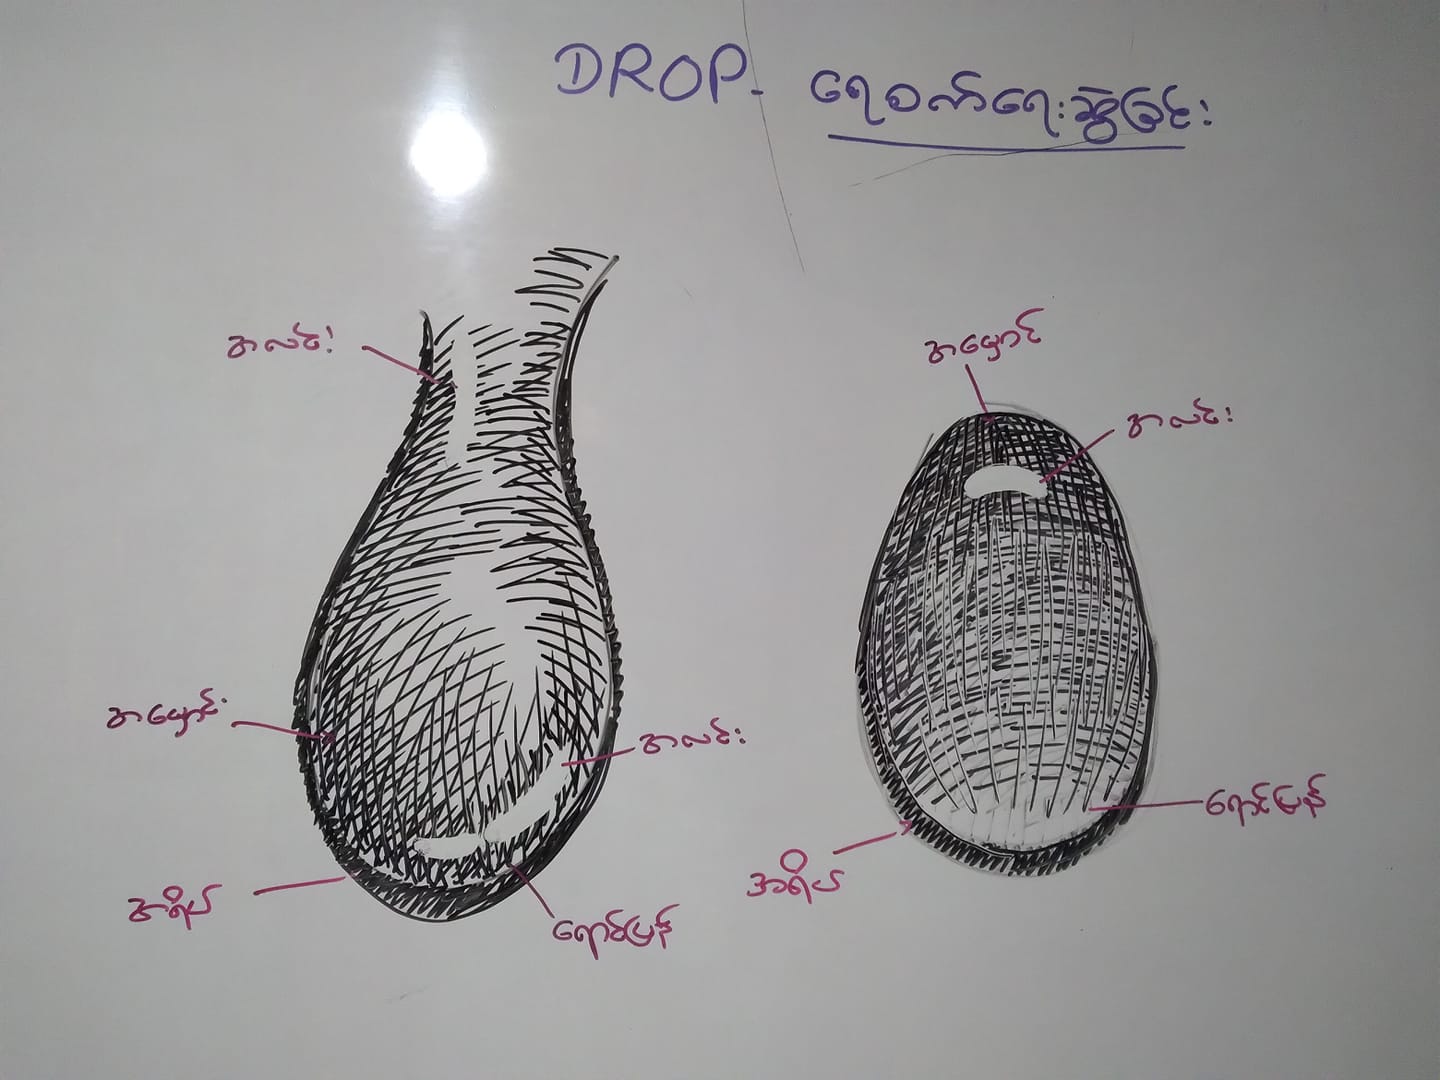 DROP - ရေစက်ရေးဆွဲခြင်း
အလင်း
အမှောင်
အလင်း
အမှောင်
အလင်း
အရိပ်
ရောင်ပြန်
အရိပ်
ရောင်ပြန်